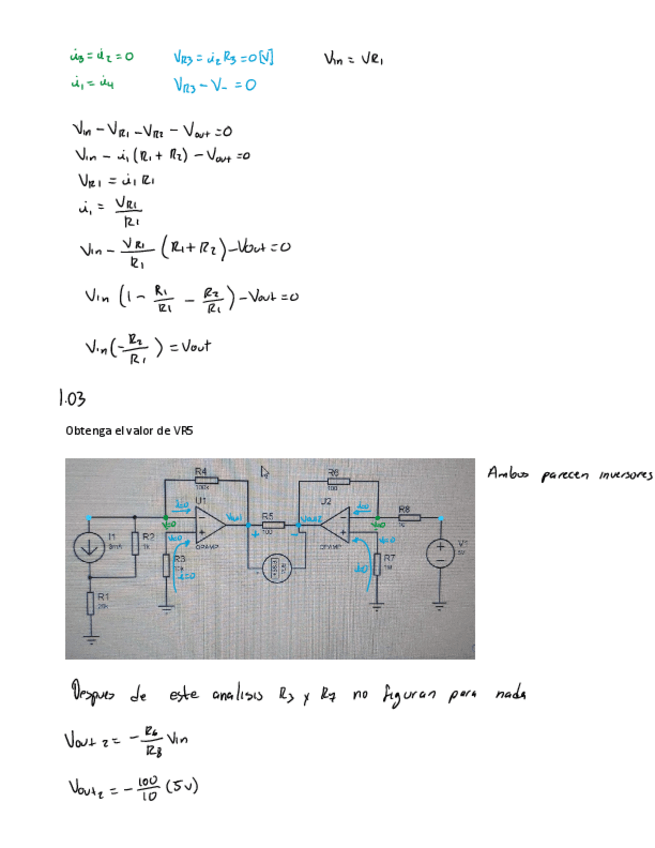 i3 = i2 = 0    VR3 = i2 R3 = 0 [V]    Vin = VR1
i1 = i4    VR3 - V- = 0
Vin - VR1 - VR2 - Vout = 0
Vin - i1 (R1 + R2) - Vout = 0
VR1 = i1 R1
i1 = VR1 / R1
Vin - VR1 / R1 (R1 + R2) - Vout = 0
Vin (1 - R1 / R1 - R2 / R1) - Vout = 0
Vin (- R2 / R1) = Vout
1.03
Obtenga el valor de VR5
Ambos parecen inversores
R4
100k
R6
100
U1
U2
i=0
Vout1
R5
100
Vout2
R8
I1
R2
1k
V=0
OPAMP
V1
R3
i=0
R7
R1
Despues de este analisis R3 y R7 no figuran para nada
Vout 2 = - R6 / R8 Vin
Vout2 = - 100 / 10 (5v)